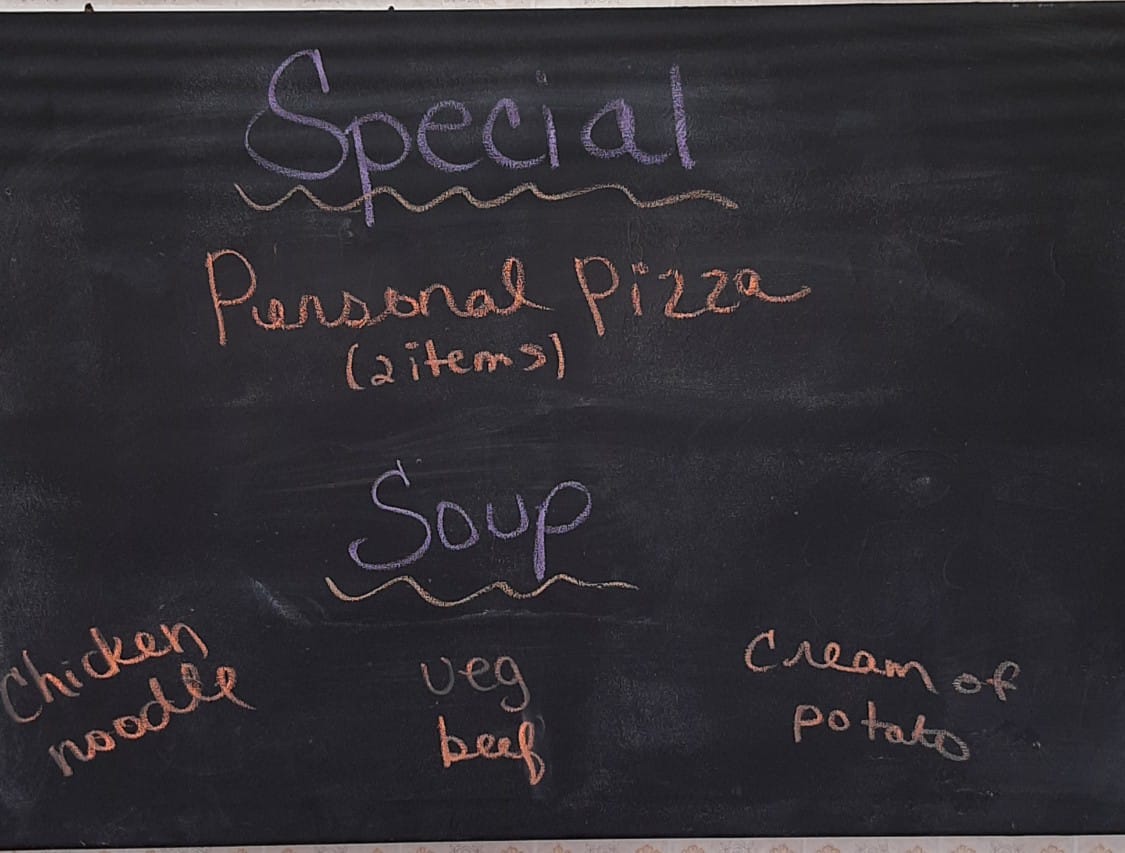 Special
Personal Pizza
(2 items)
Soup
Chicken
noodle
veg
beef
Cream of
potato